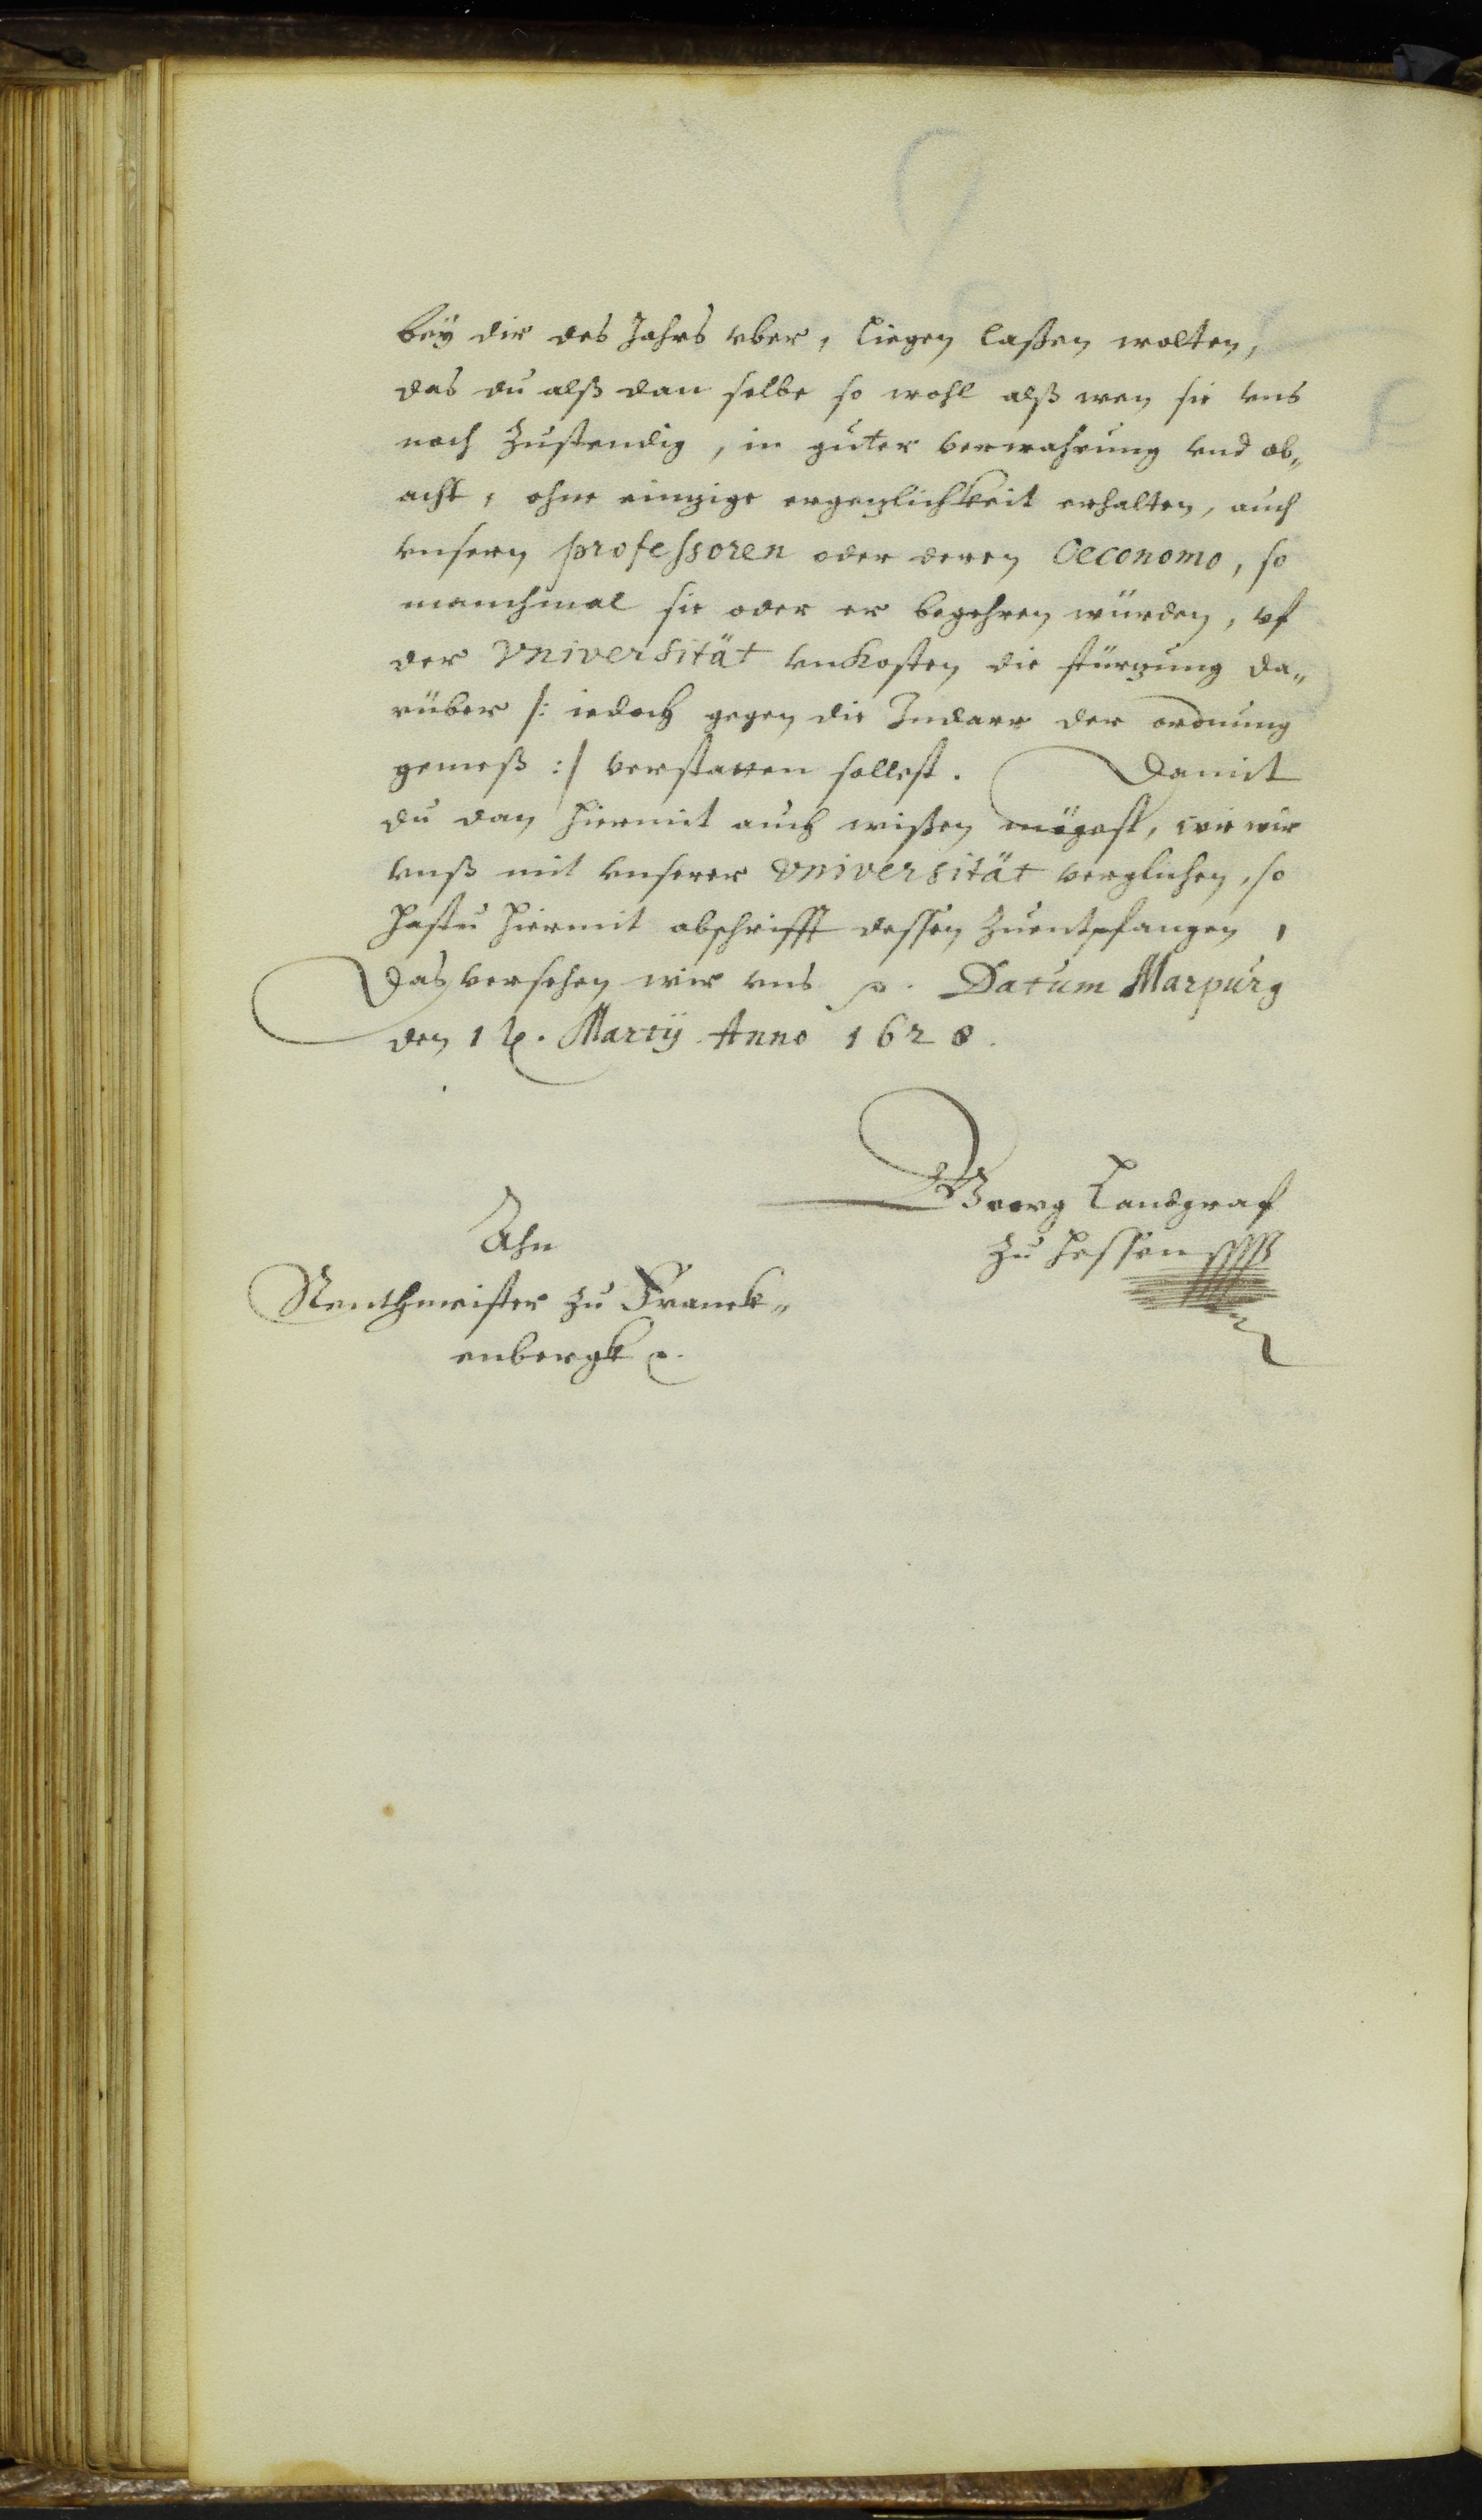 bey dir des Jahrs vber, liegen laßen wolten,
das du alß dan selbe so wohl alß wen sie vns
noch zustendig, in guter verwahrung vnd ob„
acht, ohne einzige ergezlichkeit erhalten, auch
vnsern professoren oder deren Oeconomo, so
manchmal sie oder er begehren würden, vf
der Vniversität vnkosten die stürzung da„
rüber /: iedoch gegen die Indarr der ordnung
gemeß :/ verstatten sollest. Damit
du dan hiermit auch wißen mögest, wie wir
vnß mit vnserer Vniversität verglichen, so
hastu hiermit abschrifft dessen zuentpfangen,
Das versehen wir vns p. Datum Marpurg
den Martij Anno 1628.
Georg Landgraf
zu Hessen
Ahn
Rentmeister zu Franck„
enbergk p.